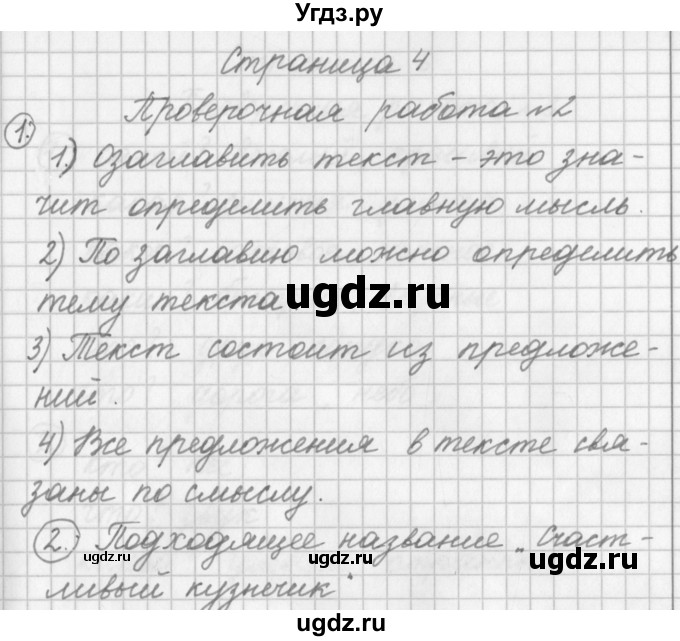 Угдз.ру
Страница 4
Проверочная работа №2
1. 1) Озаглавить текст - это зна-
чит определить главную мысль.
2) По заглавию можно определить
тему текста.
ugdz.ru
3) Текст состоит из предложе-
ний.
4) Все предложения в тексте свя-
заны по смыслу.
2. Подходящее название „Счаст-
ugdz.ru ugdz.ru
ливый кузнечик"
ugdz.ru